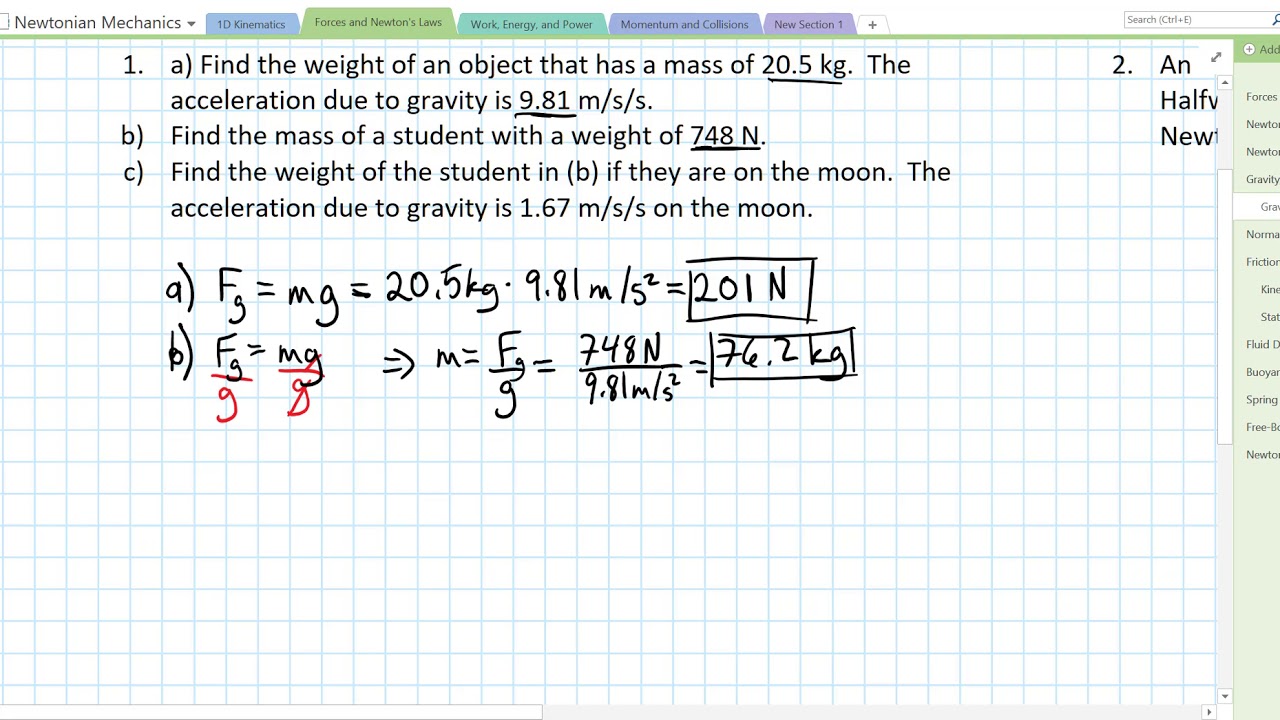 Newtonian Mechanics
1D Kinematics
Forces and Newton's Laws
Work, Energy, and Power
Momentum and Collisions
New Section 1
+
Search (Ctrl+E)
Add
1. a) Find the weight of an object that has a mass of 20.5 kg. The
acceleration due to gravity is 9.81 m/s/s.
b) Find the mass of a student with a weight of 748 N.
c) Find the weight of the student in (b) if they are on the moon. The
acceleration due to gravity is 1.67 m/s/s on the moon.
2. An
Halfw
Newt
a) Fg = mg = 20.5kg · 9.81m/s² = 201 N
b) Fg/g = mg/g ⇒ m = Fg/g = 748N/9.81m/s² = 76.2 kg
Forces
Newton
Newto
Gravity
Grav
Norma
Friction
Kine
Stat
Fluid D
Buoyar
Spring
Free-Bo
Newto